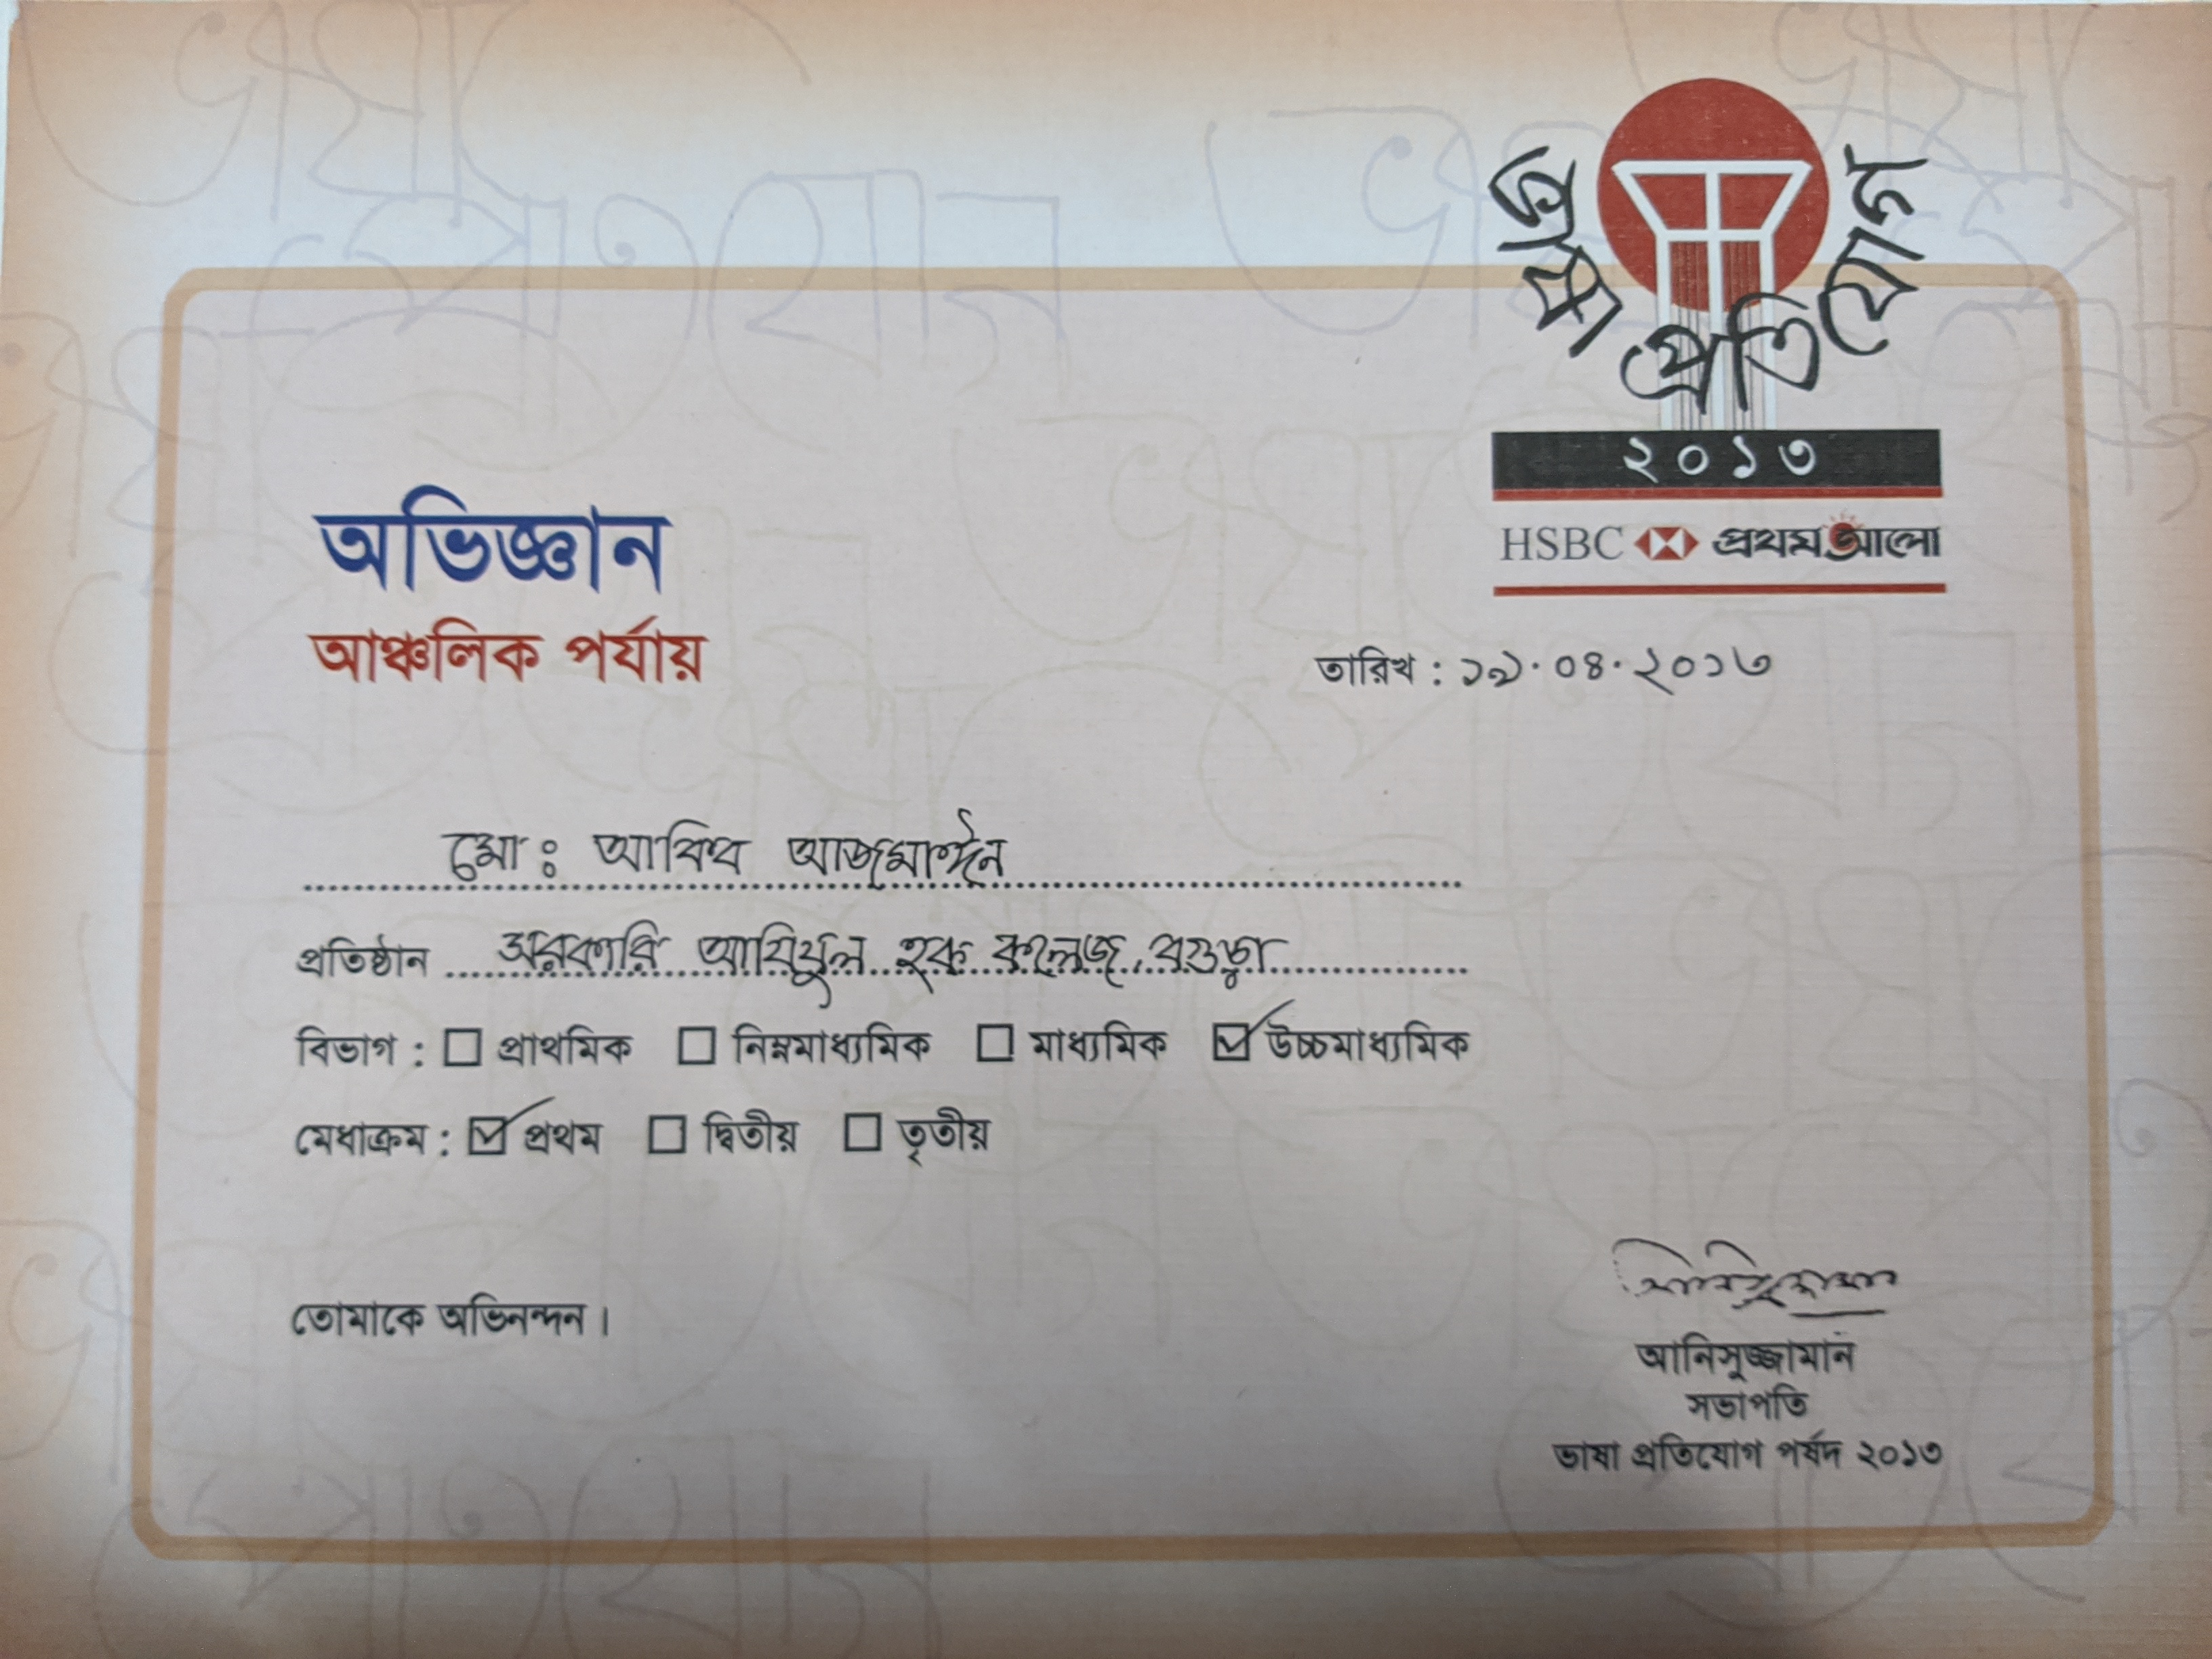 ভাষা প্রতিযোগ
২০১৩
HSBC প্রথম আলো
অভিজ্ঞান
আঞ্চলিক পর্যায়
তারিখ : ১৯.০৪.২০১৩
মোঃ আকিব আজমাঈন
প্রতিষ্ঠান সরকারি আযিযুল হক কলেজ, বগুড়া
বিভাগ : প্রাথমিক নিম্নমাধ্যমিক মাধ্যমিক উচ্চমাধ্যমিক
মেধাক্রম : প্রথম দ্বিতীয় তৃতীয়
তোমাকে অভিনন্দন।
আনিসুজ্জামান
আনিসুজ্জামান
সভাপতি
ভাষা প্রতিযোগ পর্ষদ ২০১৩